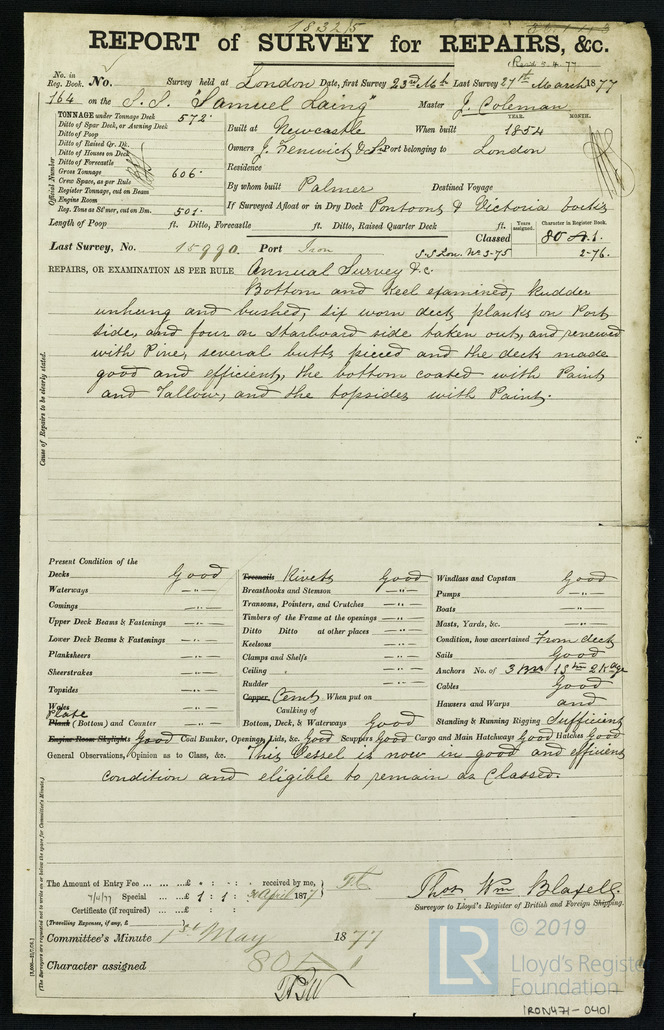 18325
REPORT of SURVEY for REPAIRS, &c.
No. in Reg. Book. No. Survey held at London Date, first Survey 23rd Mch Last Survey 27th March 1877
764 on the S.S. "Samuel Laing" Master J. Coleman
TONNAGE under Tonnage Deck 572
Ditto of Spar Deck, or Awning Deck
Ditto of Poop
Ditto of Raised Qr. Dk.
Ditto of Houses on Deck
Ditto of Forecastle
Gross Tonnage 606
Crew Space, as per Rule
Register Tonnage, cut on Beam
Engine Room
Reg. Tons as St'mer, cut on Bm. 501
Official Number
YEAR. MONTH.
Built at Newcastle When built 1854
Owners J. Fenwick & Port belonging to London
Residence
By whom built Palmer Destined Voyage
If Surveyed Afloat or in Dry Dock Pontoons & Victoria Docks
Length of Poop ft. Ditto, Forecastle ft. Ditto, Raised Quarter Deck ft.
Years assigned. Character in Register Book.
Classed 80 A.1.
Last Survey, No. 15990 Port Iron
S.S. Lon. No 3-75 2-76.
REPAIRS, OR EXAMINATION AS PER RULE Annual Survey &c.
Bottom and Keel examined, Rudder
unhung and bushed, six worn deck planks on Port
side, and four on Starboard side taken out, and renewed
with Pine, several butts pieced and the deck made
good and efficient, the bottom coated with Paint
and Tallow, and the topsides with Paint.
Cause of Repairs to be clearly stated.
Present Condition of the
Decks Good
Waterways -"-
Comings -"-
Upper Deck Beams & Fastenings -"-
Lower Deck Beams & Fastenings -"-
Planksheers -"-
Sheerstrakes -"-
Topsides -"-
Wales
Plate
Plank (Bottom) and Counter -"-
Treenails Rivets Good
Breasthooks and Stemson -"-
Transoms, Pointers, and Crutches -"-
Timbers of the Frame at the openings -"-
Ditto Ditto at other places -"-
Keelsons -"-
Clamps and Shelfs -"-
Ceiling -"-
Rudder -"-
Copper, Cemt When put on
Caulking of
Bottom, Deck, & Waterways Good
Windlass and Capstan Good
Pumps -"-
Boats -"-
Masts, Yards, &c. -"-
Condition, how ascertained From deck
Sails Good
Anchors No. of 3 Brs 1 Stm 2 Kdge
Cables Good
Hawsers and Warps and
Standing & Running Rigging Sufficient
Engine Room Skylights Good Coal Bunker, Openings, Lids, &c. Good Scuppers Good Cargo and Main Hatchways Good Hatches Good
General Observations, Opinion as to Class, &c. This Vessel is now in good and efficient
condition and eligible to remain as Classed.
The Amount of Entry Fee £ : : received by me,
7/4/77 Special £ 1 : 1 : 30 April 1877
Certificate (if required)
(Travelling Expenses, if any, £ )
Thos Wm Blaxell.
Surveyor to Lloyd's Register of British and Foreign Shipping.
Committee's Minute 1st May 1877
Character assigned 80 A 1
© 2019
LR
Lloyd's Register
Foundation
IRON471-0401